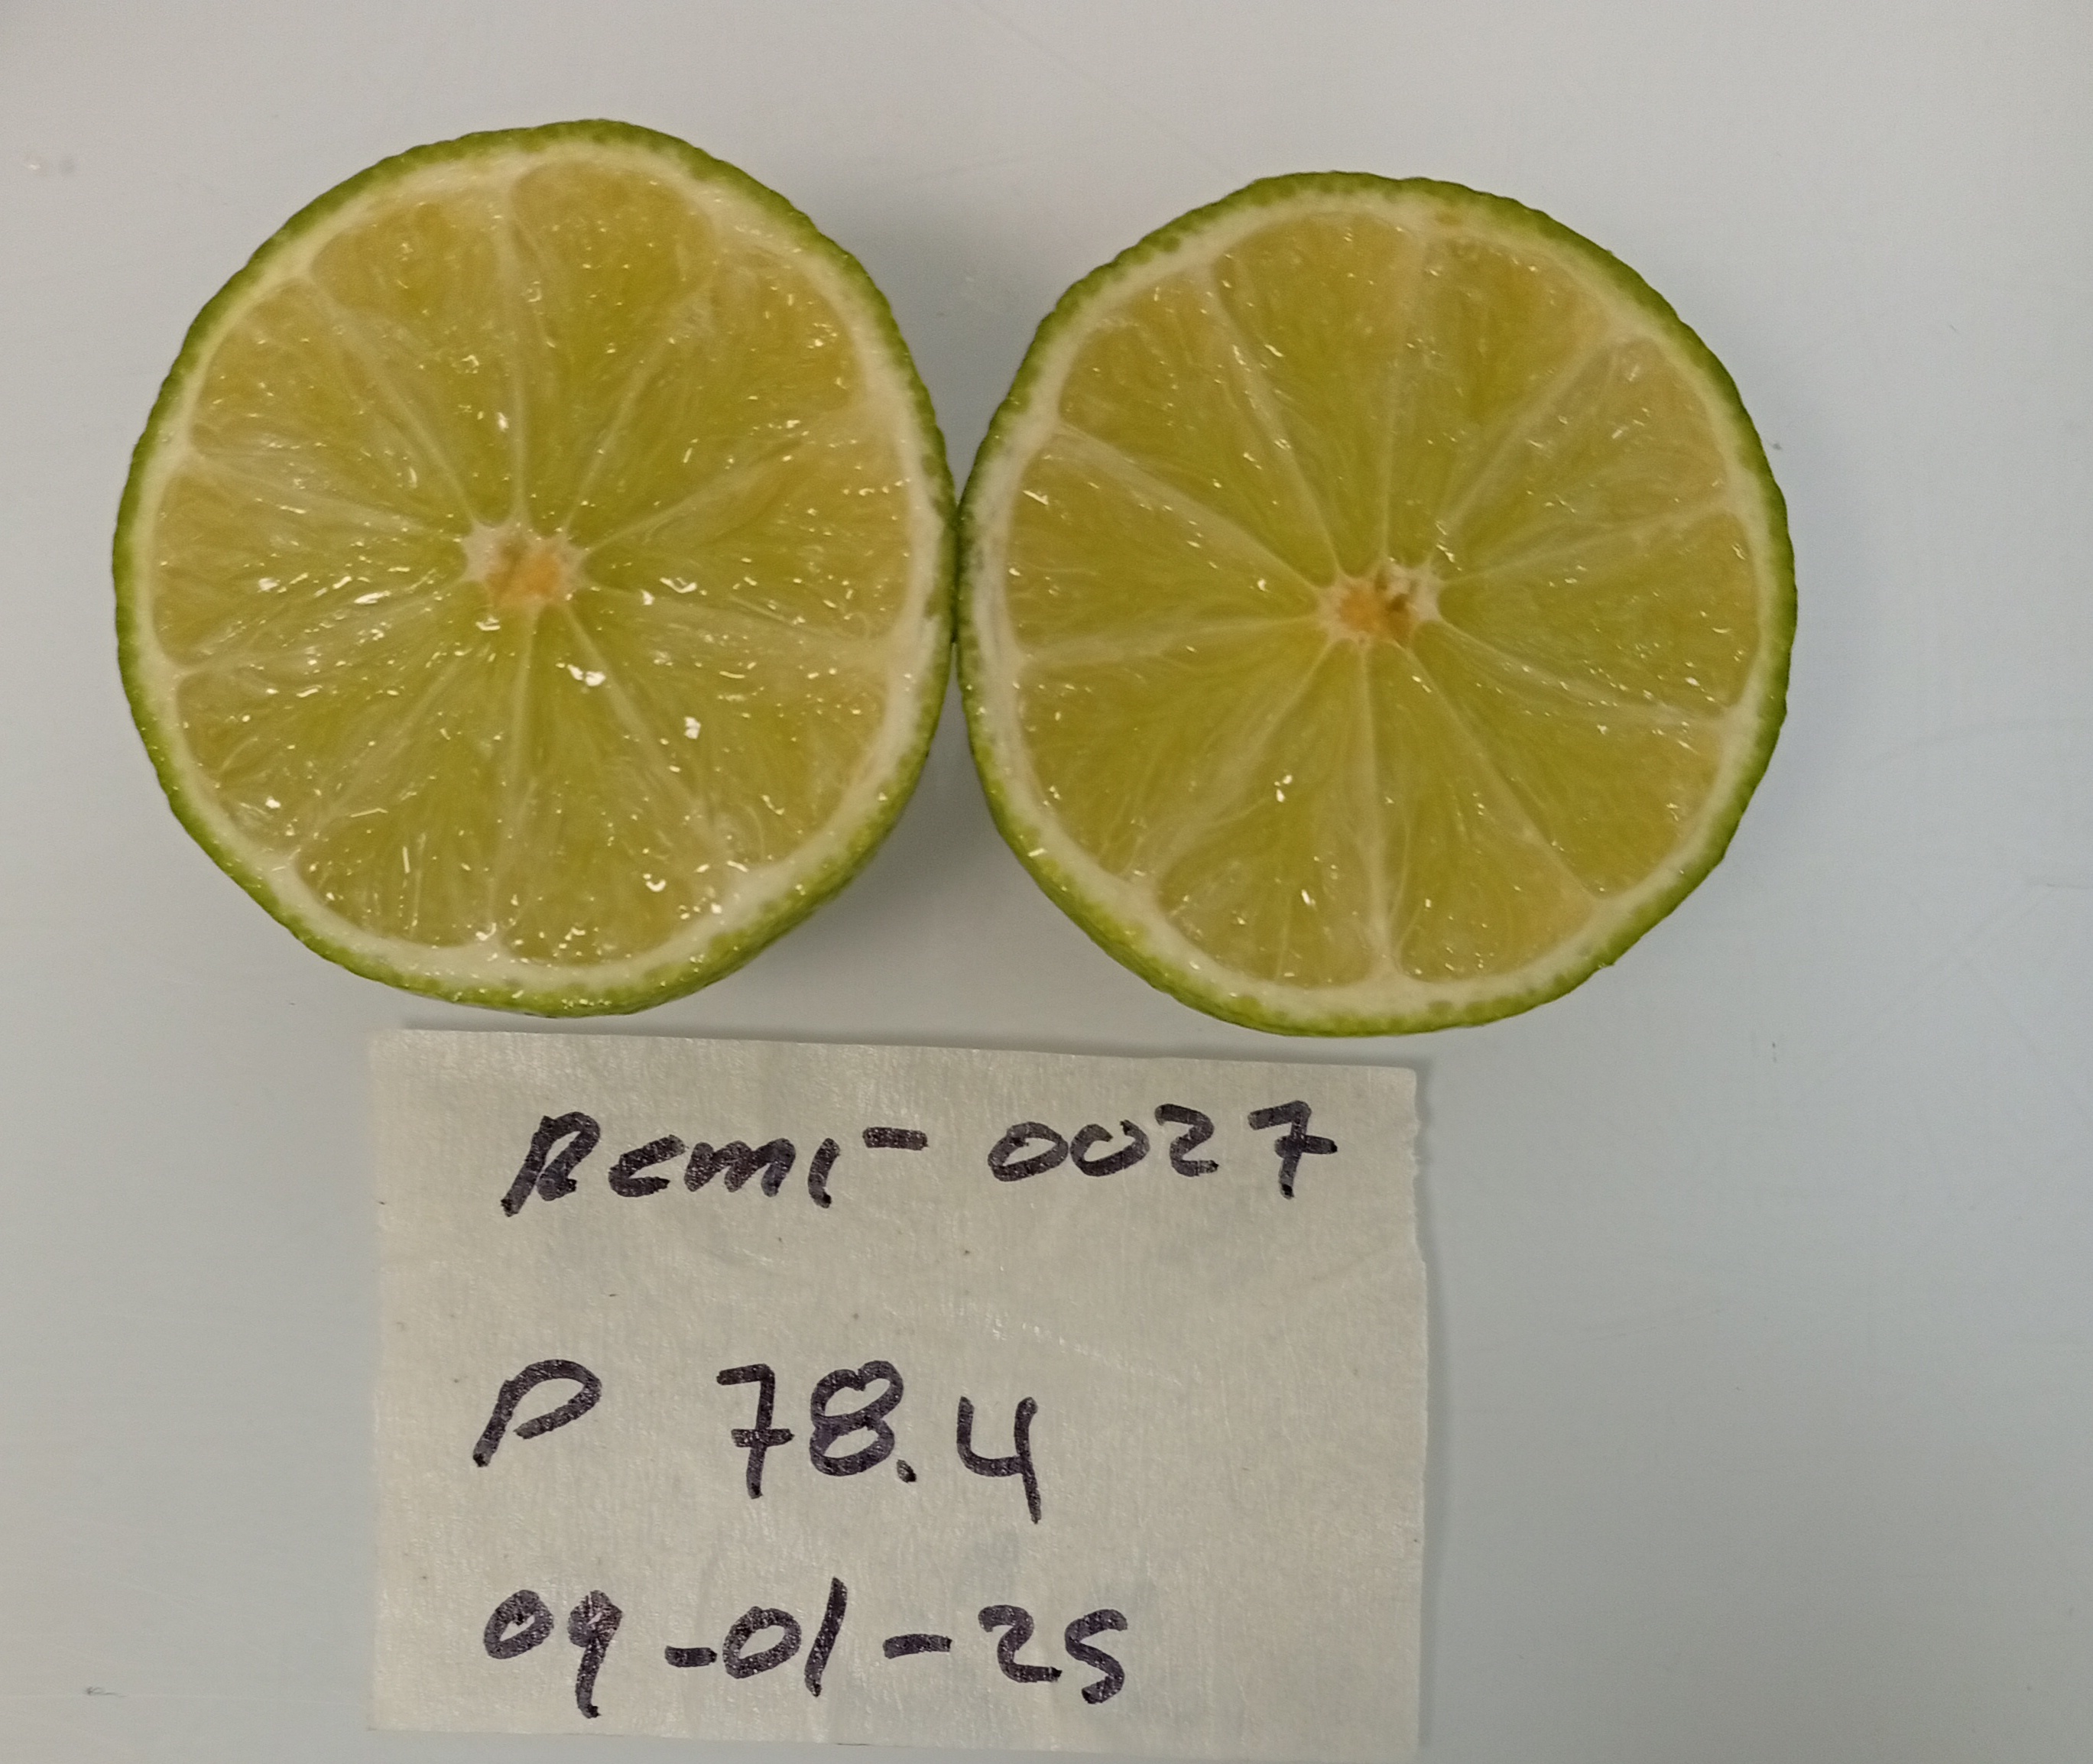 Remi- 0027
P 78.4
09-01-25